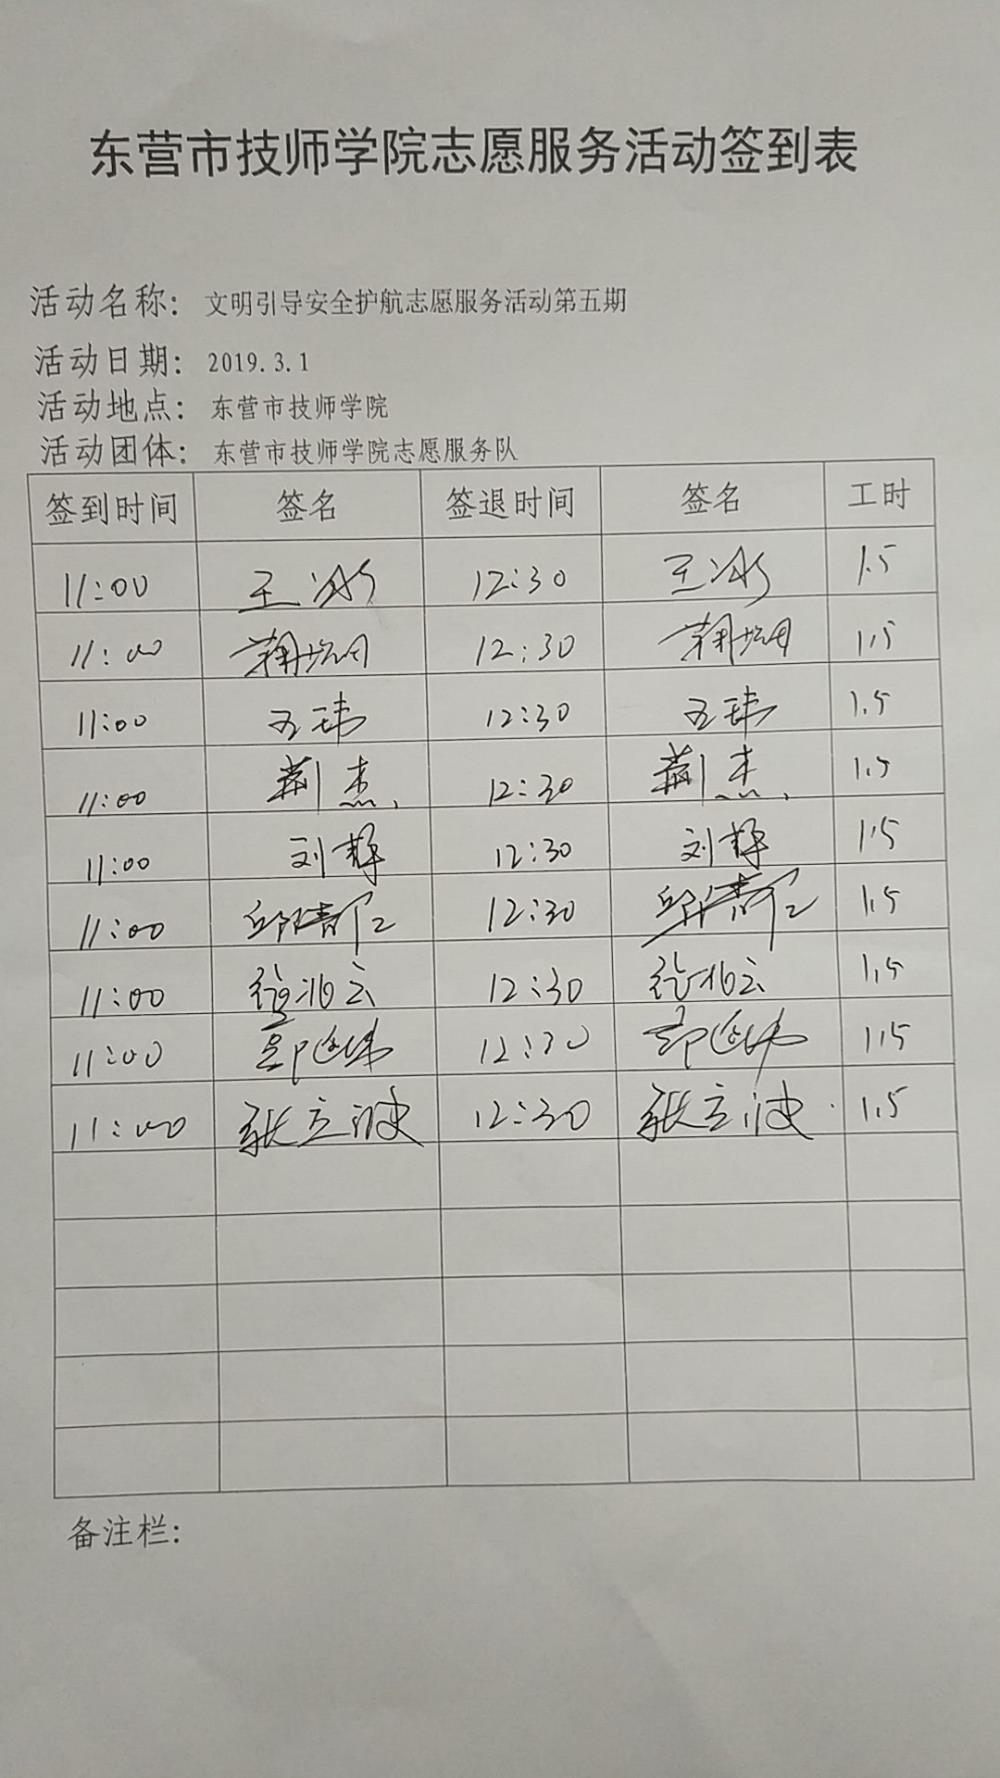 东营市技师学院志愿服务活动签到表
活动名称： 文明引导安全护航志愿服务活动第五期
活动日期： 2019.3.1
活动地点： 东营市技师学院
活动团体： 东营市技师学院志愿服务队
签到时间 签名 签退时间 签名 工时
11:00 王冰 12:30 王冰 1.5
11:00 12:30 1.5
11:00 王玮 12:30 王玮 1.5
11:00 荆杰 12:30 荆杰 1.5
11:00 刘辉 12:30 刘辉 1.5
11:00 12:30 1.5
11:00 徐兆云 12:30 徐兆云 1.5
11:00 12:30 1.5
11:00 张立波 12:30 张立波 1.5
备注栏: